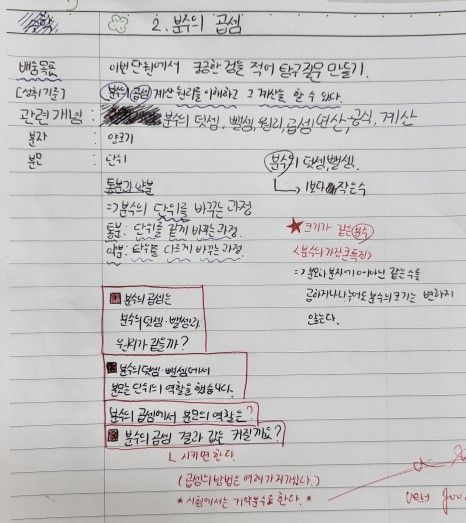 2. 분수의 곱셈
배움목표 이번 단원에서 궁금한 점을 적어 탐구질문 만들기.
[성취기준] 분수의 곱셈 계산 원리를 이해하고 그 계산을 할 수 있다.
관련개념 : 분수의 덧셈, 뺄셈, 원리, 곱셈, 연산, 공식, 계산
분자 : 양, 크기
분모 : 단위
분수의 덧셈, 뺄셈.
1보다 작은 수
통분과 약분
=> 분수의 단위를 바꾸는 과정
통분: 단위를 같게 바꾸는 과정.
약분: 단위를 다르게 바꾸는 과정.
★ 크기가 같은 분수
<분수의 가진 큰 특징>
=> 분모와 분자에 0이 아닌 같은 수를
곱하거나 나누어도 분수의 크기는 변하지
않는다.
분수의 곱셈은
분수의 덧셈·뺄셈과
원리가 같을까?
분수의 덧셈·뺄셈에서
분모는 단위의 역할을 했습니다.
분수의 곱셈에서 분모의 역할은?
분수의 곱셈 결과 값은 커질까요?
시키면 한다.
(곱셈의 방법은 여러 가지가 있다.)
* 시험에서는 기약분수로 한다. *
very good